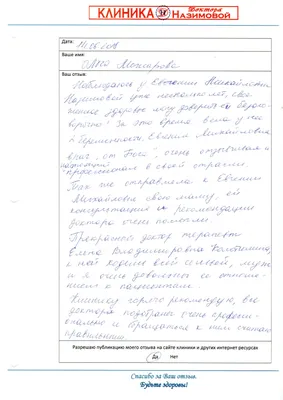 КЛИНИКА Доктора НАЗИМОВОЙ
Дата:
Ваше имя:
Ольга
Ваш отзыв:
Наблюдаюсь у Евгении Михайловны
Назимовой уже несколько лет, свое
женское здоровье могу доверить ей безого-
ворочно! За это время вела у нас
2 беременности. Евгения Михайловна
врач "от Бога", очень отзывчивая и
настоящий профессионал в своей отрасли.
Так же отправляла к Евгении
Михайловне свою маму, ей
консультация и рекомендации
доктора очень помогли.
Прекрасный доктор терапевт
Елена Владимировна
к ней ходили всей семьей, муж
и я очень довольны ее отноше-
нием к пациентам.
Клинику горячо рекомендую, все
доктора подобраны очень професси-
онально и обращаться к ним считаю
правильным.
Разрешаю публикацию моего отзыва на сайте клиники и других интернет ресурсах
Да Нет
Спасибо за Ваш отзыв.
Будьте здоровы!